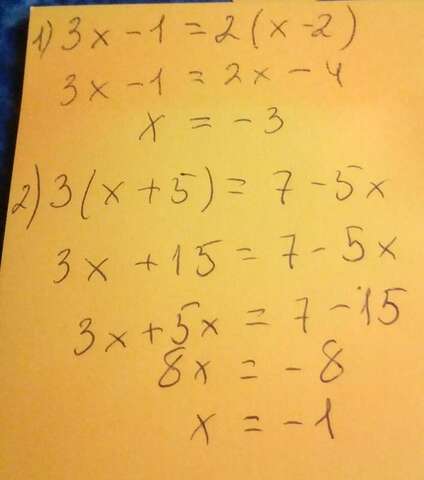 1) 3x - 1 = 2(x - 2)
3x - 1 = 2x - 4
x = - 3
2) 3(x + 5) = 7 - 5x
3x + 15 = 7 - 5x
3x + 5x = 7 - 15
8x = - 8
x = - 1